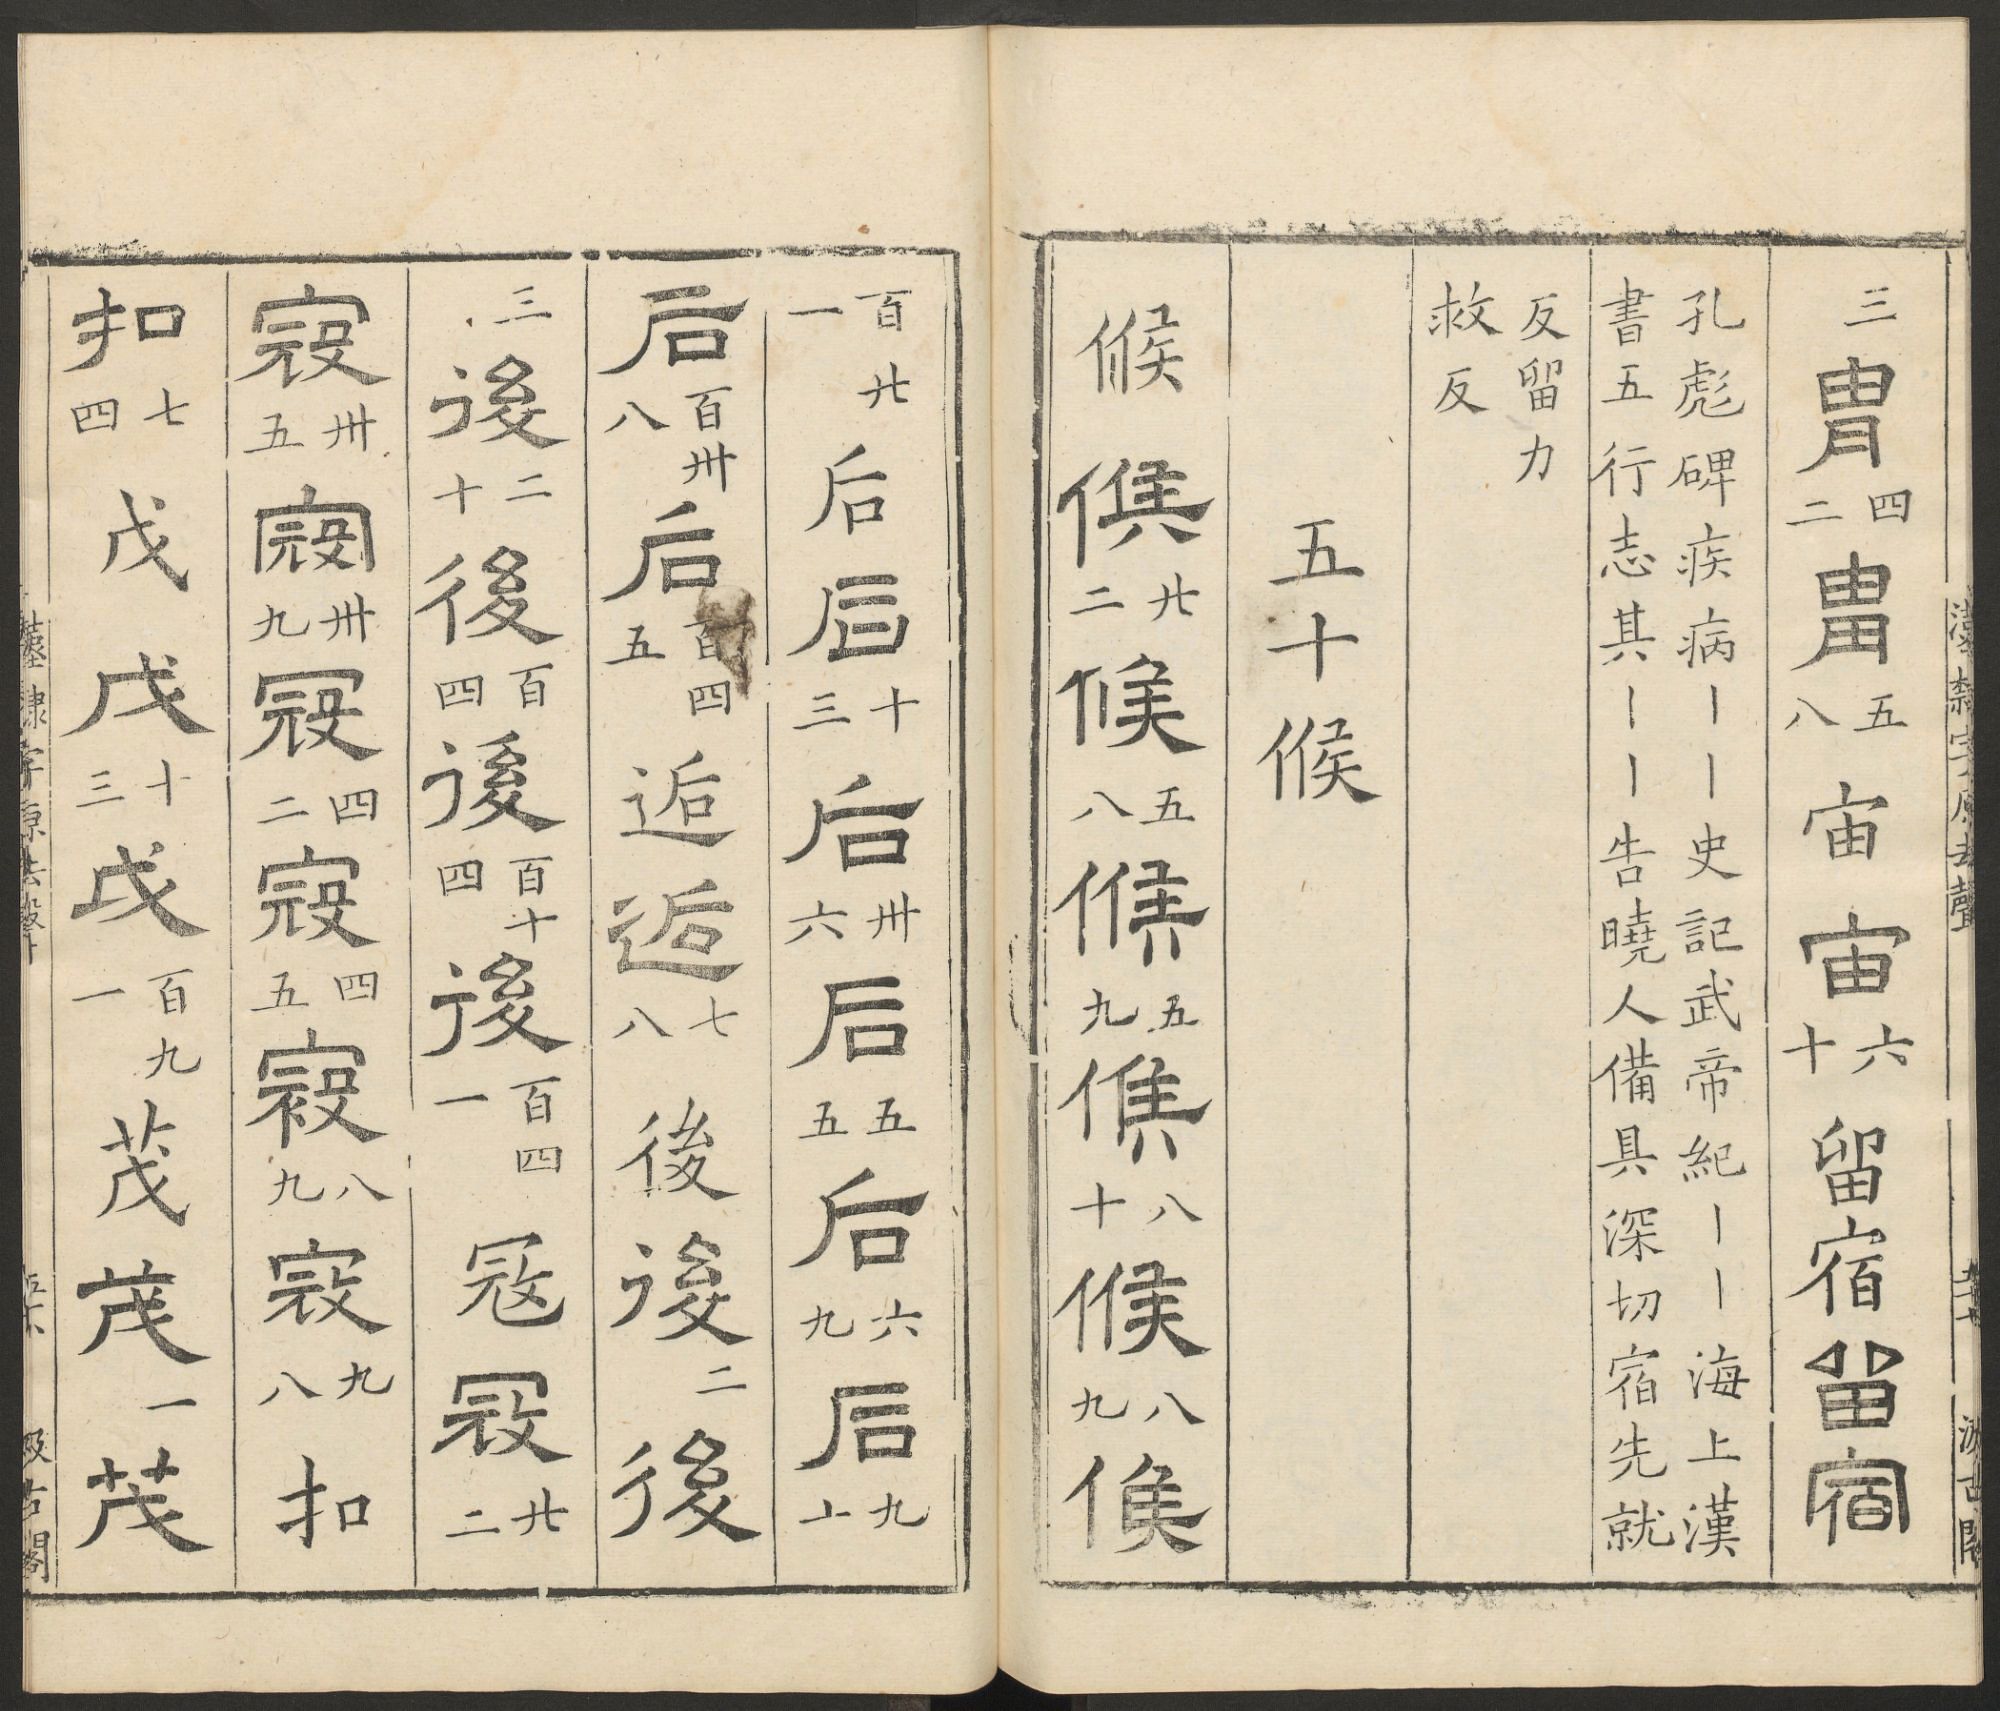 三胄四二胄五八宙宙六十留宿留宿
孔彪碑疾病丨丨史記武帝紀丨丨海上漢
書五行志其丨丨告曉人備具深切宿先就
反留力
救反
五十候
候候廿二候五八候五九候八十候八九候
百廿一后后十三后卅六后五五后六九后九十
后百卅八后百四五逅逅七八後後二後
三後二十後百四後百十四後百四一寇寇廿二
寇卅五寇卅九寇四二寇四五寇八九寇九八扣
扣七四戊戊十三戊百九一茂茂一茂
漢隸字原去聲
汲古閣